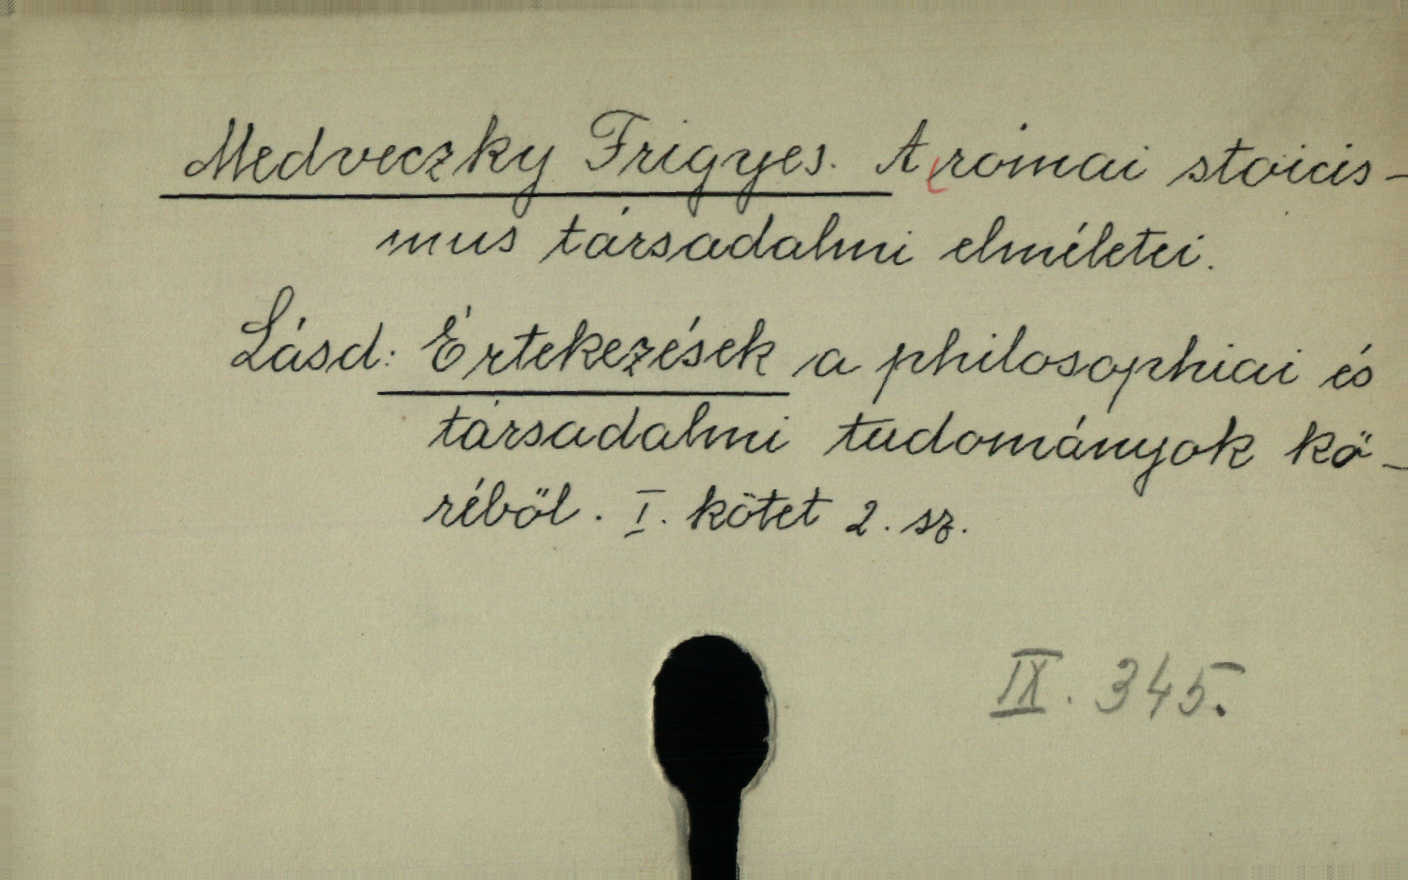 Medveczky Frigyes. A római stoicis-
mus társadalmi elméletei.
Lásd: Értekezések a philosophiai és
társadalmi tudományok kö-
réböl. I. kötet 2. sz.
IX. 345.